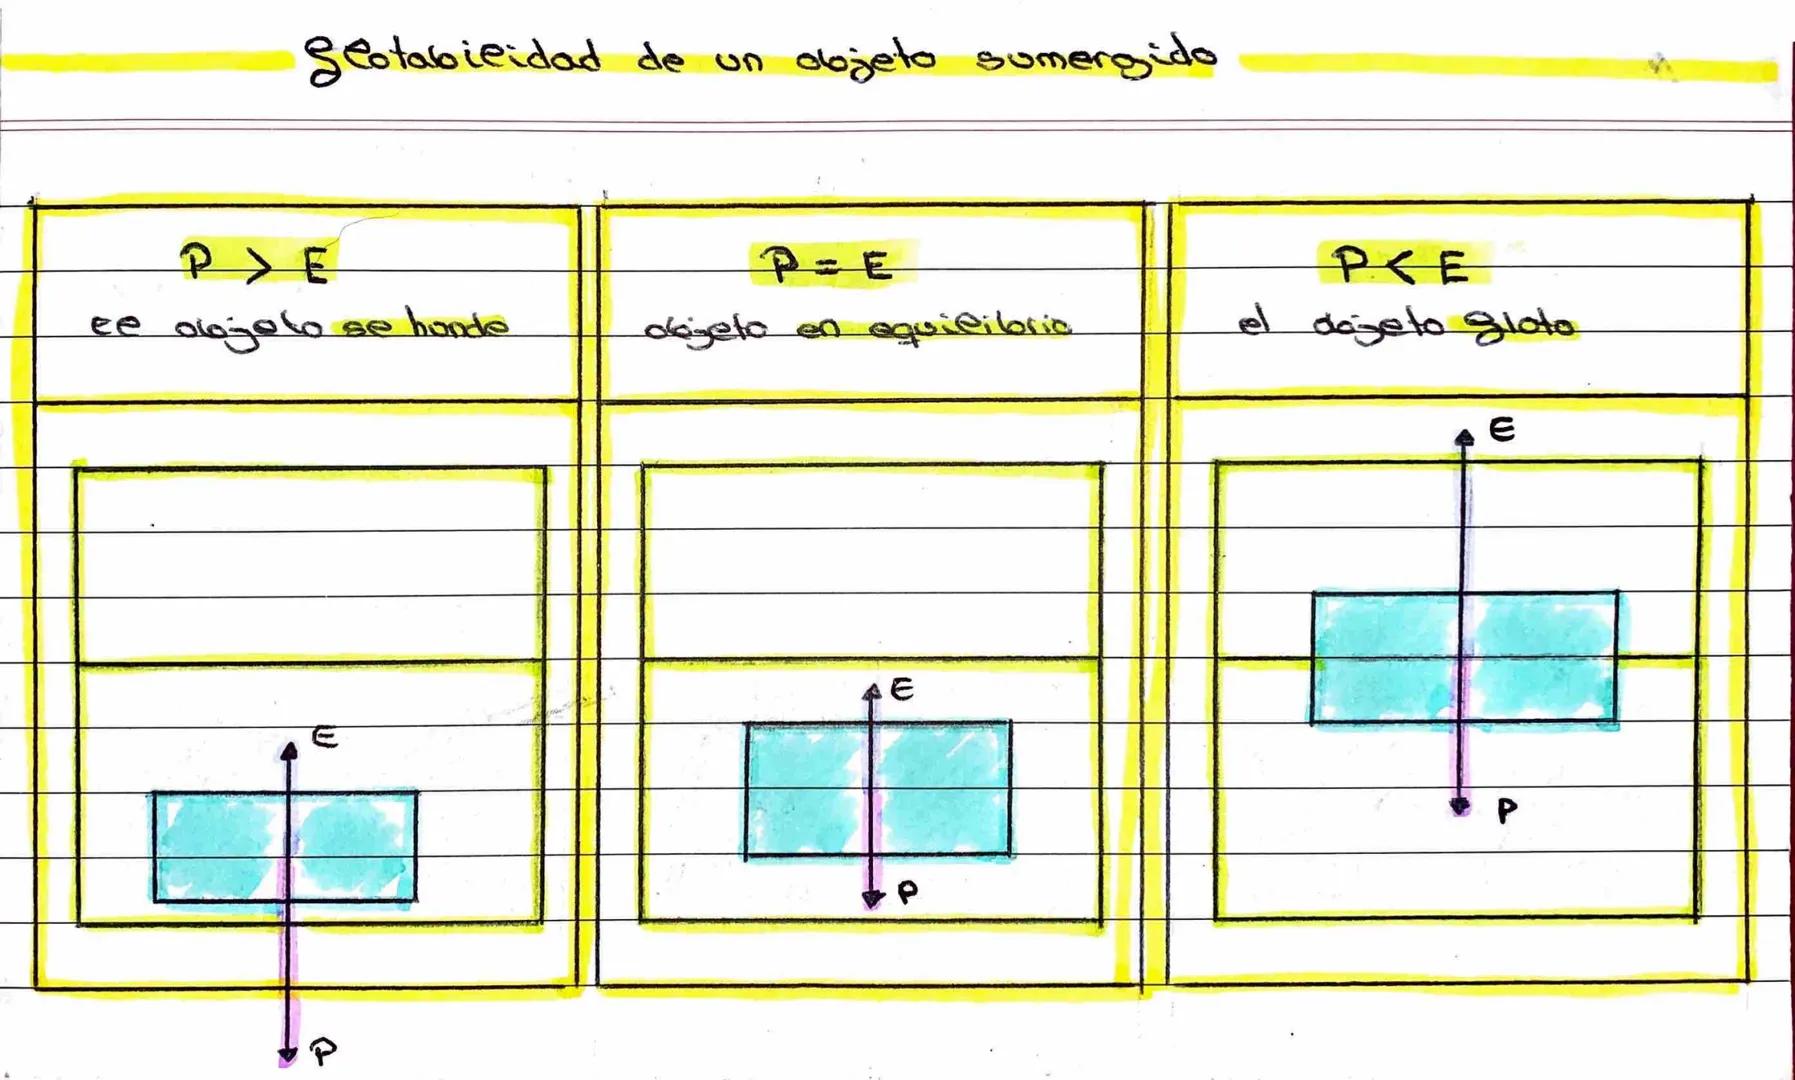 flotabilidad de un objeto sumergido
P > E
el objeto se hunde
E
P
P = E
objeto en equilibrio
E
P
P < E
el objeto flota
E
P